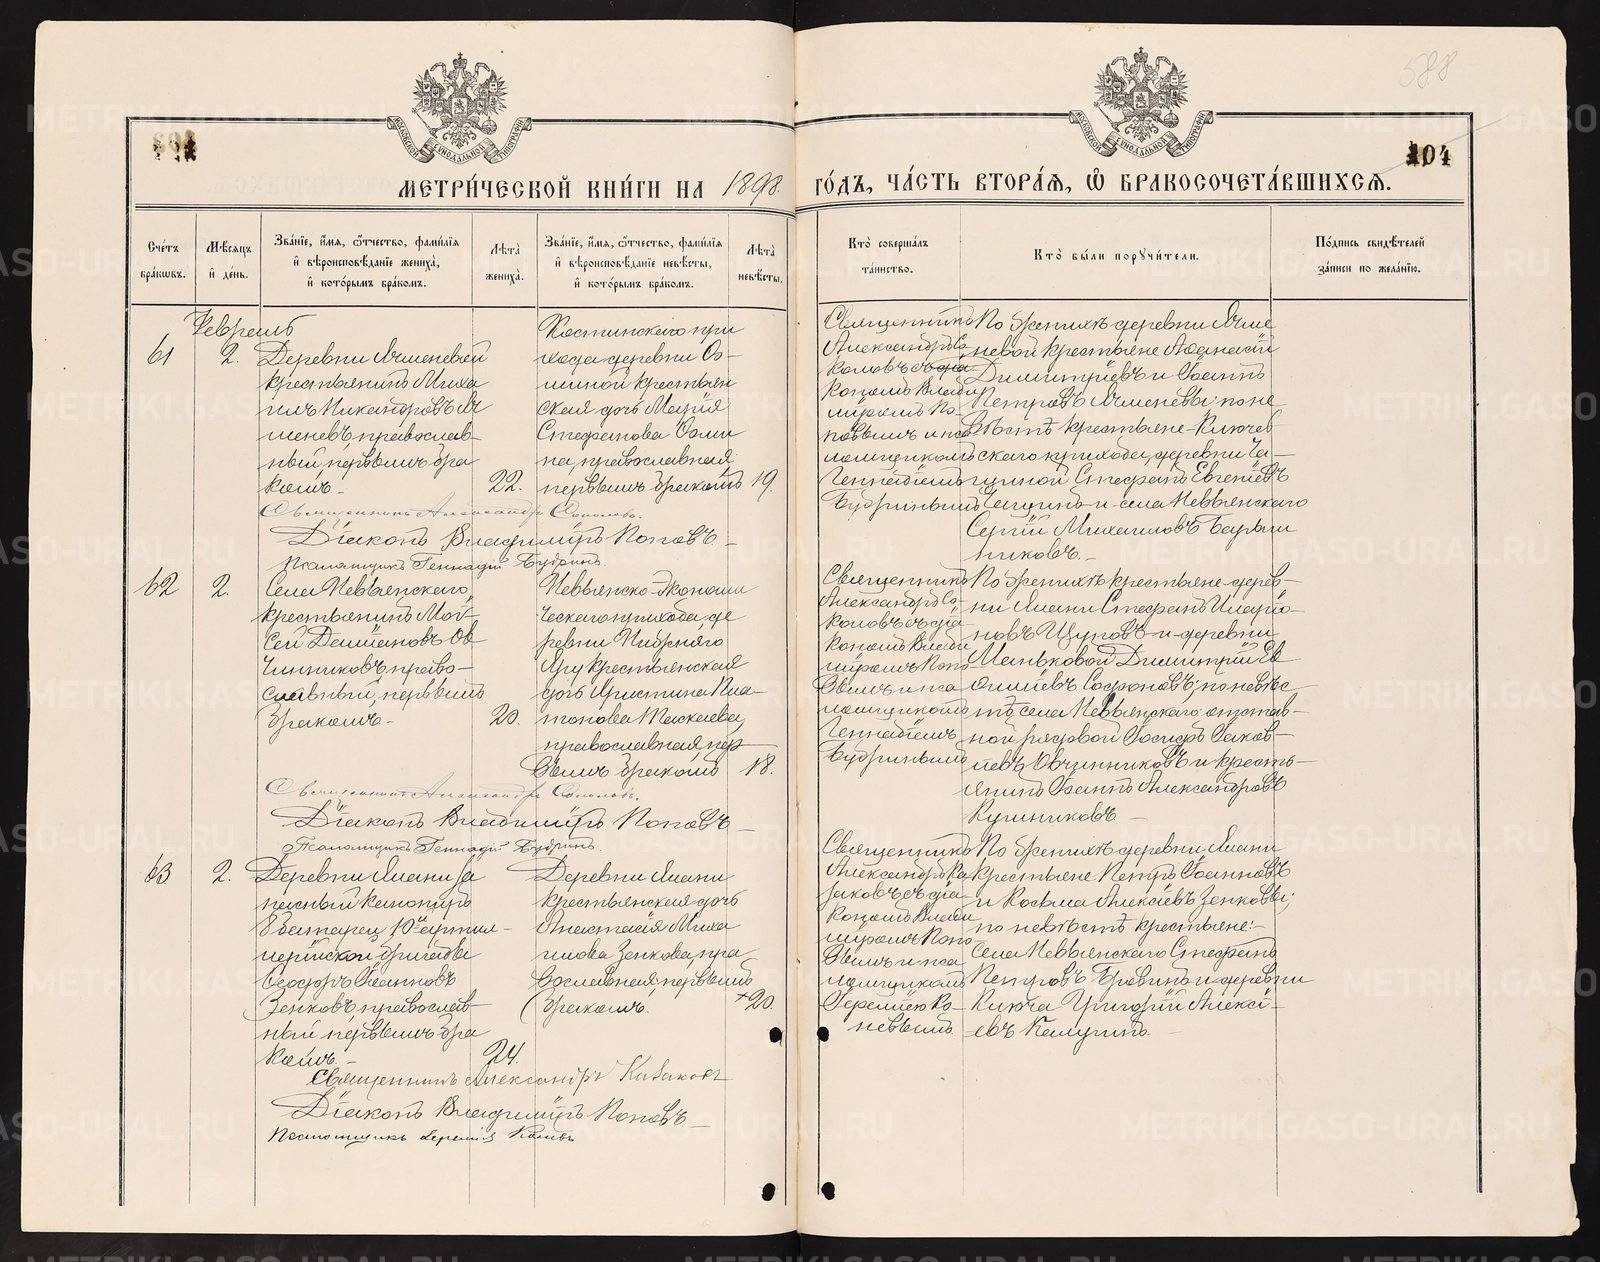 588
104
МЕТРИ́ЧЕСКОЙ КНИ́ГИ НА 1898
ГО́ДЪ, ЧА́СТЬ ВТОРА́Я, Ѽ БРАКОСОЧЕТА́ВШИХСЯ.
Сче́тъ бра́кѡвъ.
Мѣ́сяцъ и҆ де́нь.
Зва́нїе, и҆́мя, ѻ҆́тчество, фамилїя
и҆ вѣроисповѣ́данїе жениха̀,
и҆ кото́рымъ бра́комъ.
Лѣ́та жениха̀.
Зва́нїе, и҆́мя, ѻ҆́тчество, фамилїя
и҆ вѣроисповѣ́данїе невѣ́сты,
и҆ кото́рымъ бра́комъ.
Лѣ́та невѣ́сты.
Кто̀ соверша́лъ та́инство.
Кто̀ бы́ли порꙋчи́тели.
По́дпись свидѣ́телей за́писи по жела́нїю.
Февраль
61
2.
Деревни Ячменевой
крестьянинъ Миха
илъ Никандровъ Яч
меневъ, православ-
ный, первымъ бра
комъ.-
22.
Костинскаго при
хода деревни Оз-
ниной крестьян
ская дочь Марія
Стефанова
православная,
первымъ бракомъ
19.
Священникъ
Александръ Со
коловъ съ діа
кономъ Влади
міромъ По-
повымъ и пса
ломщикомъ
Геннадіемъ
Бубринымъ
По женихѣ деревни Ячме
невой крестьяне Аѳанасій
Димитріевъ и Іоаннъ
Петровъ Ячменевы; по не
вѣстѣ крестьяне Ключев
скаго прихода, деревни
Стефанъ Евгеніевъ
и села Невьянскаго
Сергій Михаиловъ
Священникъ Александръ Соколовъ.
Діаконъ Владиміръ Поповъ
Псаломщикъ Геннадій Бубринъ.
62
2.
Села Невьянскаго,
крестьянинъ Мой-
сей Даміановъ Ов
чинниковъ, право-
славный, первымъ
бракомъ-
20.
Невьянско-Экономи
ческаго прихода, де
ревни
крестьянская
дочь Христина Пла-
тонова
православная, пер
вымъ бракомъ
18.
Священникъ
Александръ Со-
коловъ съ діа-
кономъ Влади
міромъ Попо
вымъ и пса
ломщикомъ
Геннадіемъ
Бубринымъ
По женихѣ крестьяне дерев-
ни Ялани Стефанъ Иларіо-
новъ Щуповъ и деревни
Маньковой Димитрій Ев
ѳиміевъ Софоновъ; по невѣс
тѣ села Невьянскаго отстав-
ной рядовой Іосифъ Іаков-
левъ Овчинниковъ и кресть-
янинъ Іоаннъ Александровъ
Священникъ Александръ Соколовъ.
Діаконъ Владиміръ Поповъ
Псаломщикъ Геннадій Бубринъ.
63
2.
Деревни Ялани за
пасный канониръ
8 батареи 10й артил-
лерійской бригады
Ѳеодоръ Іоанновъ
Зенковъ, православ-
ный, первымъ бра
комъ.-
24.
Деревни Ялани
крестьянская дочь
Анастасія Миха
илова Зенкова, пра
вославная, первымъ
бракомъ.
20.
Священникъ
Александръ Ка
заковъ съ діа-
кономъ Влади
міромъ Попо-
вымъ и пса
ломщикомъ
Іереміею Ко-
невымъ
По женихѣ деревни Ялани
крестьяне Петръ Іоанновъ
и Косьма Алексіевъ Зенковы;
по невѣстѣ крестьяне:
Села Невьянскаго Стефанъ
Петровъ и деревни
Ключа Григорій Алексі-
евъ
Священникъ Александръ Казаковъ
Діаконъ Владиміръ Поповъ
Псаломщикъ Іеремія Коневъ
METRIKI.GASO-URAL.RU